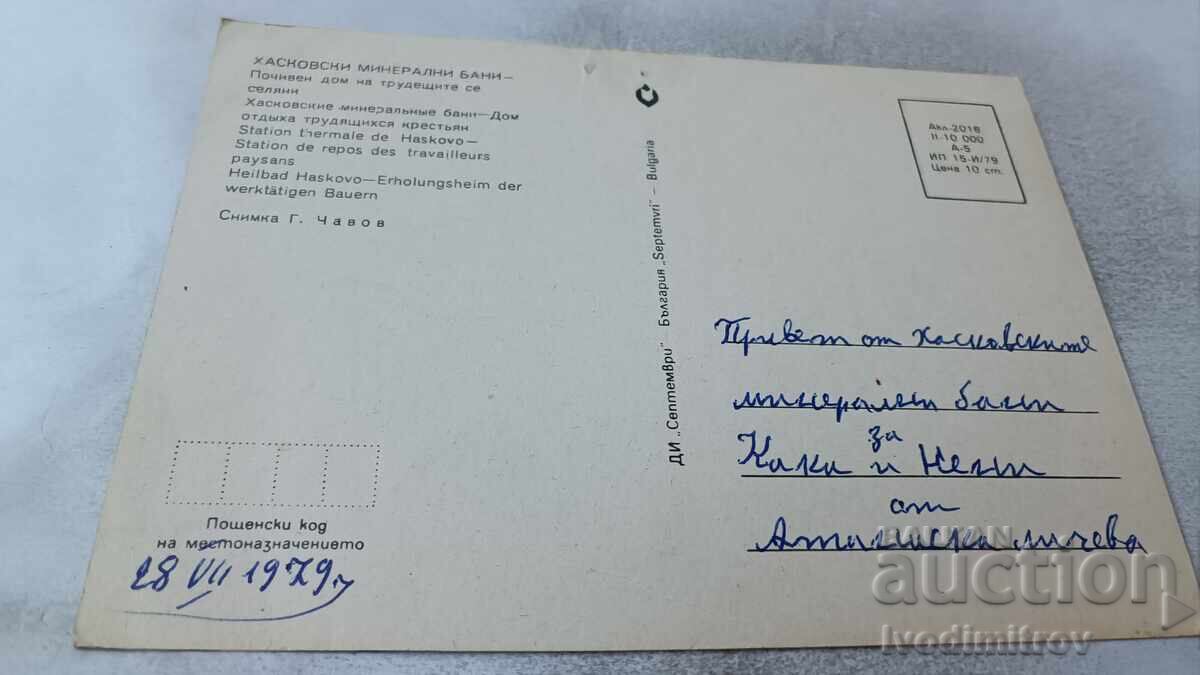 ХАСКОВСКИ МИНЕРАЛНИ БАНИ—
Почивен дом на трудещите се
селяни
Хасковские минеральные бани—Дом
отдыха трудящихся крестьян
Station thermale de Haskovo—
Station de repos des travailleurs
paysans
Heilbad Haskovo—Erholungsheim der
werktätigen Bauern
Снимка Г. Чавов
Пощенски код
на местоназначението
28 VII 1979 г
ДИ „Септември" България „Septemvri" – Bulgaria
Акл-2018
II-10 000
А-5
ИП 15-И/79
Цена 10 ст.
Привет от Хасковските
минерални бани
за
Кака и Нени
от
Атанаска Личева
BALKAN
auction
Ivodimitrov